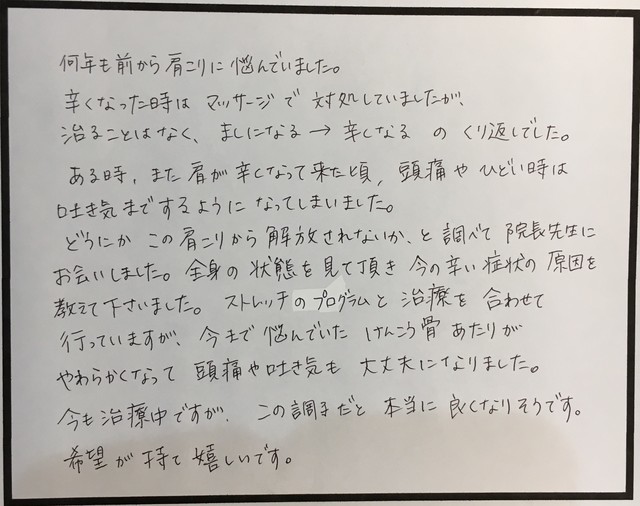 何年も前から肩こりに悩んでいました。
辛くなった時は マッサージで 対処していましたが、
治ることはなく、ましになる→辛くなる の くり返しでした。
ある時、また肩が辛くなって来た頃、頭痛や ひどい時は
吐き気までするように なってしまいました。
どうにか この肩こりから解放されないか、と調べて 院長先生に
お会いしました。全身の状態を見て頂き 今の辛い症状の原因を
教えて下さいました。ストレッチのプログラムと治療を合わせて
行っていますが、今まで悩んでいた けんこう骨あたりが
やわらかくなって 頭痛や吐き気も 大丈夫になりました。
今も治療中ですが、この調子だと 本当に良くなりそうです。
希望が持て嬉しいです。